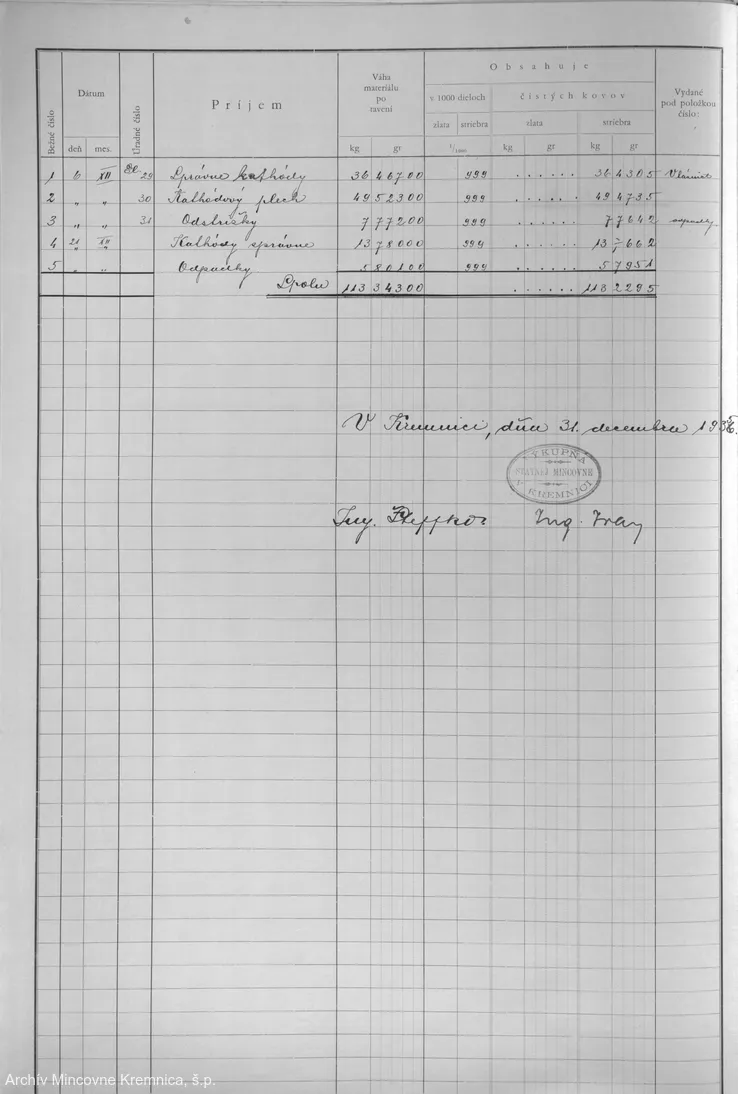 Obsahuje
Bežné číslo
Dátum
Úradné číslo
Príjem
Váha materiálu po tavení
v 1000 dieloch
čistých kovov
Vydané pod položkou číslo:
zlata striebra zlata striebra
deň mes. kg gr 1/1000 kg gr kg gr
1 6 XII El. 29 Správne kathódy 36 46700 999 . . . . . . 36 4305
2 " " 30 Kathódový plech 49 52300 999 . . . . . . 49 4735
3 " " 31 Odstrižky 7 77200 999 . . . . . . 7 7642
4 21 XII Kathódy správne 13 78000 999 . . . . . . 13 7662
5 " " Odpadky 5 80100 999 . . . . . . 5 7951
Spolu 113 34300 . . . . . . 113 2295
V Kremnici, dňa 31. decembra
VÝKUPŇA
ŠTÁTNEJ MINCOVNE
V KREMNICI
Ing. Ing.
Archív Mincovne Kremnica, š.p.